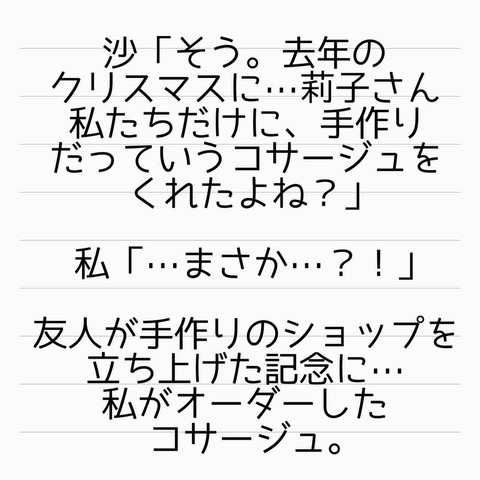 沙「そう。去年の
クリスマスに…莉子さん
私たちだけに、手作り
だっていうコサージュを
くれたよね？」
私「…まさか…？！」
友人が手作りのショップを
立ち上げた記念に…
私がオーダーした
コサージュ。